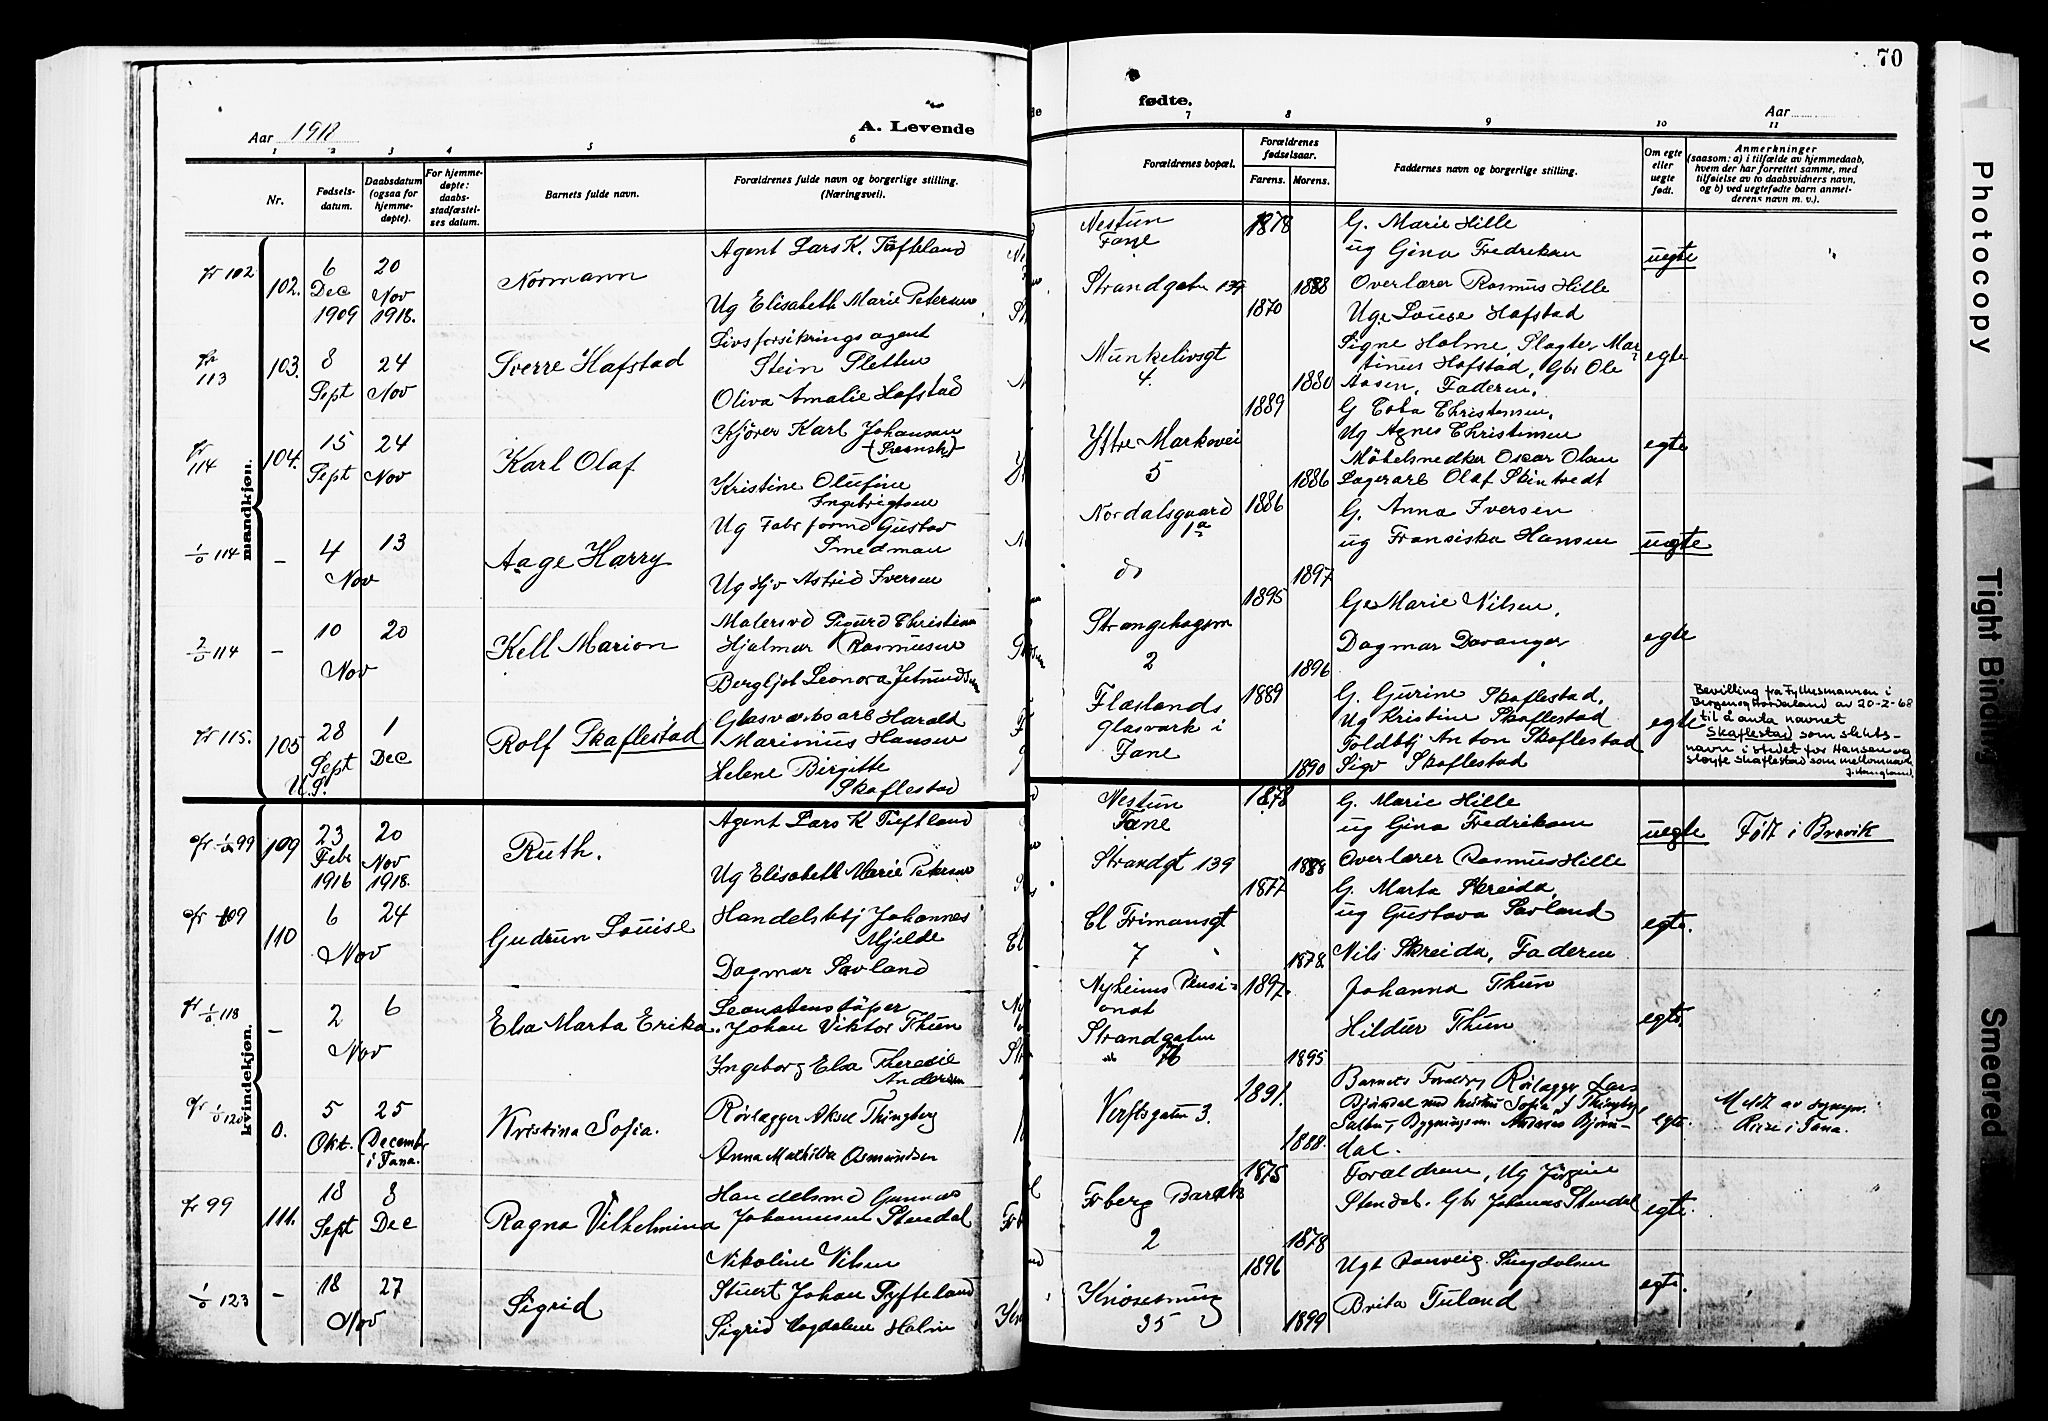 70
Aar 1918
A. Levende
fødte.
Aar
1 2 3 4 5 6
7 8 9 10 11
Nr.
Fødsels-
datum.
Daabsdatum
(ogsaa for
hjemme-
døpte).
For hjemme-
døpte:
daabs-
stadfæstel-
ses datum.
Barnets fulde navn.
Forældrenes fulde navn og borgerlige stilling.
(Næringsvei).
Forældrenes bopæl.
Forældrenes
fødselsaar.
Farens. Morens.
Faddernes navn og borgerlige stilling.
Om egte
eller
uegte
født.
Anmerkninger
(saasom: a) i tilfælde av hjemmedaab,
hvem der har forrettet samme, med
tilføielse av to daabsvidners navn,
og b) ved uegtefødte barn anmel-
derens navn m. v.).
mandkjøn.
fr 102
102.
6
Dec
1909
20
Nov
1918.
Normann
Agent Lars K. Tufteland
Ug Elisabeth Marie Petersen
Nestun
Fane
Strandgaten 139
1878
1888
G. Marie Hille
ug Gina Fredriksen
Overlærer Rasmus Hille
uegte
fr
113
103.
8
Sept
24
Nov
Sverre Hafstad
Livsforsikrings agent
Stein Sletten
Oliva Amalie Hafstad
Munkelivsgt
4.
1870
1880
Uge Louise Hafstad
Signe Holme, Slagter Mar-
tinus Hafstad, Gbr Ole
Aasen, Faderen.
egte
fr
114
104.
15
Sept
24
Nov
Karl Olaf
Kjører Karl Johansen
(Svensk)
Kristine Olufine
Ingebrigtsen
Ytre Markevei
5
1889
1886
G Tota Christensen,
Ug Agnes Christensen
Møbelsnedker Oscar Olsen
Lagerarb Olaf Stintvedt
egte
1/0 114
-
4
Nov
13
Aage Harry
Ug Fabr formd Gustav
Smedman
Ug Hjv Astrid Iversen
Nordalsgaard
1a
do
1886
1897
G. Anna Iversen
ug Fransiska Hansen
uegte
2/0 114
-
10
Nov
20
Kell Marion
Malersvd Sigurd Christian
Hjalmar Rasmussen
Bergljot Leonora Jetmundsen
Strangehagen
2
1895
1896
Ge Marie Nilsen,
Dagmar Davanger
egte
fr 115.
105
U.S.
28
Sept
1
Dec
Rolf Skaflestad
Glasværksarb Harald
Marinius Hansen
Helene Birgitte
Skaflestad
Flæslands
glasværk i
Fane
1889
1890
G. Gurine Skaflestad,
Ug Kristine Skaflestad
Toldbtj Anton Skaflestad
Sigv Skaflestad
egte
Bevilling fra Fylkesmannen i
Bergen og Hordaland av 20-2-68
til å anta navnet
Skaflestad som slekts-
navn i stedet for Hansen og
sløyfe Skaflestad som mellomnavn
kvindekjøn.
fr 1/0 99
109
23
Febr
1916
20
Nov
1918.
Ruth.
Agent Lars K Tuftland
Ug Elisabeth Marie Petersen
Nestun
Fane
Strandgt 139
1878
1888
G. Marie Hille
ug Gina Fredriksen
Overlærer Rasmus Hille
uegte
Født i Brevik
fr 109
110
6
Nov
24
Gudrun Louise
Handelsbtj Johannes
Mjelde
Dagmar Savland
Cl Frimansgt
7
1877
1878.
G Marta Skreida,
ug Gustava Savland
Nils Skreida, Faderen
egte.
fr 1/0 118
-
2
Nov
6
Elsa Marta Erika.
Johan Viktor Thun
Ingeborg Elsa Theresie
Andersen
Nyheims Pensi-
onat
Strandgaten
1897.
1895
Johanna Thun
Hildur Thun
egte.
fr 1/0 120
0.
5
Okt.
25
Decembr
i Fana.
Kristina Sofia.
Rørlægger Aksel Thingberg
Anna Mathilda Osmundsen
Verftsgaten 3.
1891.
1888.
Barnets Foræld, Rørlægger Lars
Bjørndal med hustru Sofia, J Thingberg,
Bygningssn. Andreas Bjørn-
dal.
egte.
Meldt av sogepr.
Riise i Fana.
fr 99
111.
18
Sept
8
Dec
Ragna Vilhelmina
Handelsmd Gunnar
Johannesen Stendal
Nikoline Nilsen
Frberg Barak
2
1875
1878
Forældrene, Ug Jørgine
Stendal. Gbr Johannes Stendal
egte.
1/0 123
-
18
Nov
27
Sigrid
Stuert Johan Tyfteland
Sigrid Magdalene Holm
Knøsesmug
35
1896
1899
Ugt Ranveig Singdalsen
Brita Tuland
egte.
Photocopy
Tight Binding
Smeared